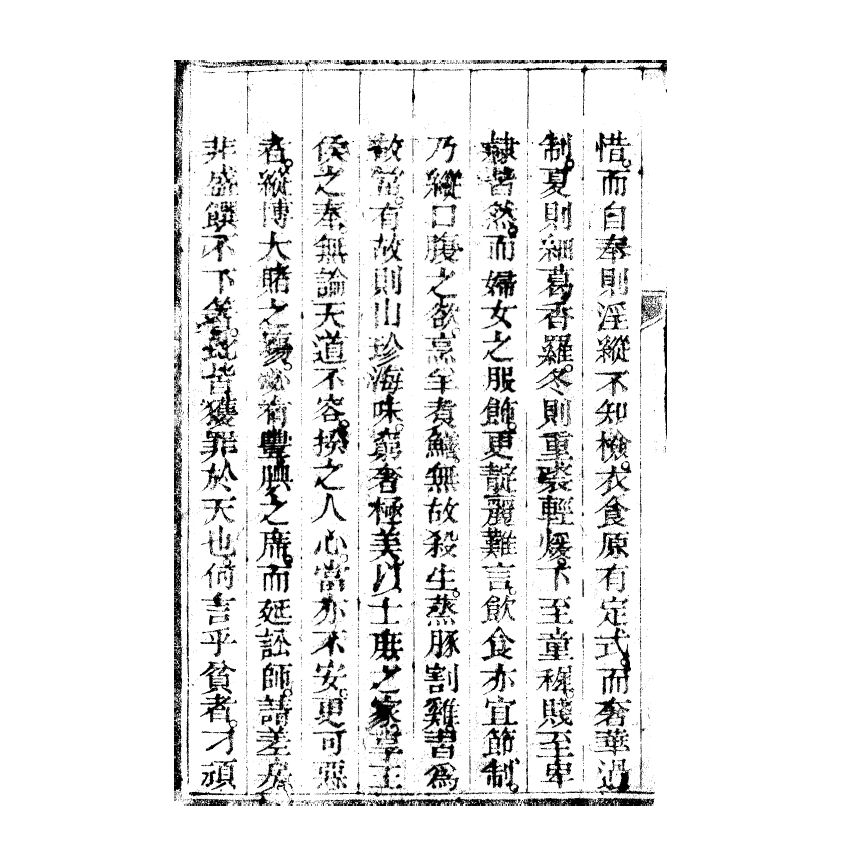 惜。而自奉則淫縱不知檢。衣食原有定式。而奢華過
制。夏則細葛香羅。冬則重裘輕煖。下至童稚。賤至卑
隸皆然。而婦女之服飾。更靛麗難言。飲食亦宜節制。
乃縱口腹之欲。烹羊煮鱻無故殺生。蒸豚割雞習為
故當。有故則山珍海味。窮奢極美。以士庶之家享王
侯之奉。無論天道不容。揆之人心。當亦不安。更可惡
者。縱博大賭之場。必有豐腆之席。而延訟師。請差房。
非盛饌不下箸。此皆獲罪於天也。何言乎貧者。才頑